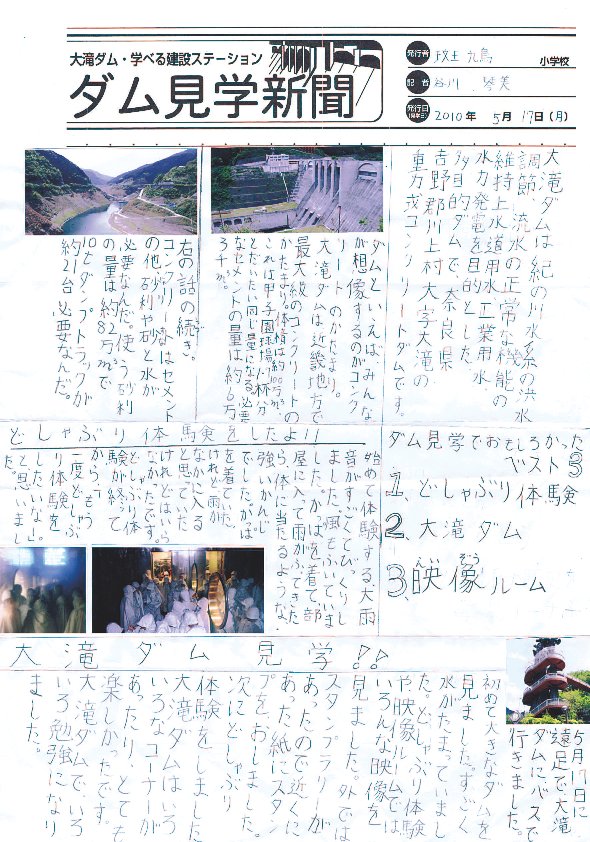 大滝ダム・学べる建設ステーション
ダム見学新聞
発行者
小学校
記者 谷川 琴美
発行日
2010年 5月 17日(月)
大滝ダムは紀の川水系の洪水
調節、流水の正常な機能の
維持上水道用水、工業用水、
水力発電を目的とした
多目的ダムで、奈良県
吉野郡川上村大字大滝の
重力式コンクリートダムです。
ダムといえば、みんな
が想像するのがコンク
リートのかたまり。
大滝ダムは近畿地方で
最大級のコンクリートの
かたまり。体積は約100万㎥、
これは甲子園球場1.7杯分
とだいたい同じ量になる。必要
なセメントの量は約16万
3千㎥。
右の話の続き。
コンクリートはセメント
の他、砂利や砂と水が
必要なんだ。使う砂利
の量は約82万㎥で
10tダンプトラックが
約21台必要なんだ。
どしゃぶり体験をしたよ!!
始めて体験する、大雨
音がすごくてびっくりし
ました。風もふいていま
した。かっぱを着て、部
屋に入って雨がふってきた
ら、体に当たるような
強いかんじ
でした。かっぱ
を着ていた
けれど雨が
なかに入る
と思っていた
けれどはいら
なかったです。
どしゃぶり体
験が終って
から、もう
一度どしゃぶ
り体験を
したいな。
と思いまし
た。
ダム見学でおもしろかった
ベスト3
1、どしゃぶり体験
2、大滝ダム
3、映像ルーム
えい ぞう
大滝ダム見学!!
5月17日に
遠足で大滝
ダムにバスで
行きました。
初めて大きなダムを
見ました。すごく
水がたまっていまし
た。どしゃぶり体験
や、映像ルームでは
いろんな映像を
見ました。外では
スタンプラリーが
あったので近くに
あった紙にスタン
プをおしました。
次にどしゃぶり
体験をしました
大滝ダムはいろ
いろなコーナーが
あったり、とても
楽しかったです。
大滝ダムで、いろ
いろ勉強になり
ました。